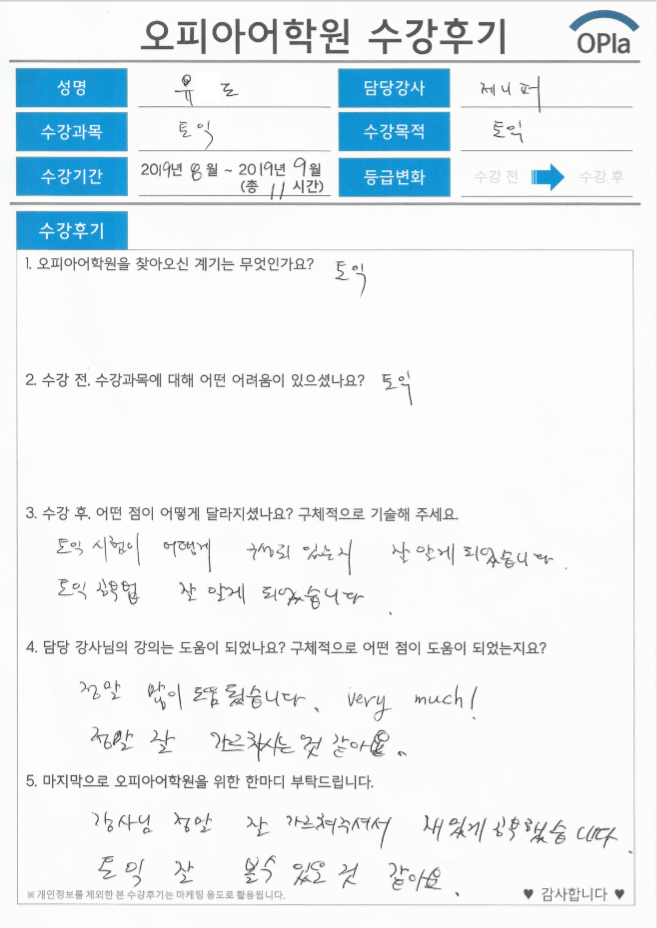 오피아어학원 수강후기
OPIa
성명 유도 담당강사 제니퍼
수강과목 토익 수강목적 토익
수강기간 2019년 8월 ~ 2019년 9월
(총 11 시간) 등급변화 수강 전 수강 후
수강후기
1. 오피아어학원을 찾아오신 계기는 무엇인가요? 토익
2. 수강 전, 수강과목에 대해 어떤 어려움이 있으셨나요? 토익
3. 수강 후, 어떤 점이 어떻게 달라지셨나요? 구체적으로 기술해 주세요.
토익 시험이 어떻게 구성되 있는지 잘 알게 되었습니다.
토익 공부법 잘 알게 되었습니다.
4. 담당 강사님의 강의는 도움이 되었나요? 구체적으로 어떤 점이 도움이 되었는지요?
정말 많이 도움 됬습니다. very much!
정말 잘 가르쳐시는 것 같아요.
5. 마지막으로 오피아어학원을 위한 한마디 부탁드립니다.
강사님 정말 잘 가르쳐주셔서 재밌게 공부했습니다.
토익 잘 볼수 있을 것 같아요.
※ 개인정보를 제외한 본 수강후기는 마케팅 용도로 활용됩니다.
♥ 감사합니다 ♥